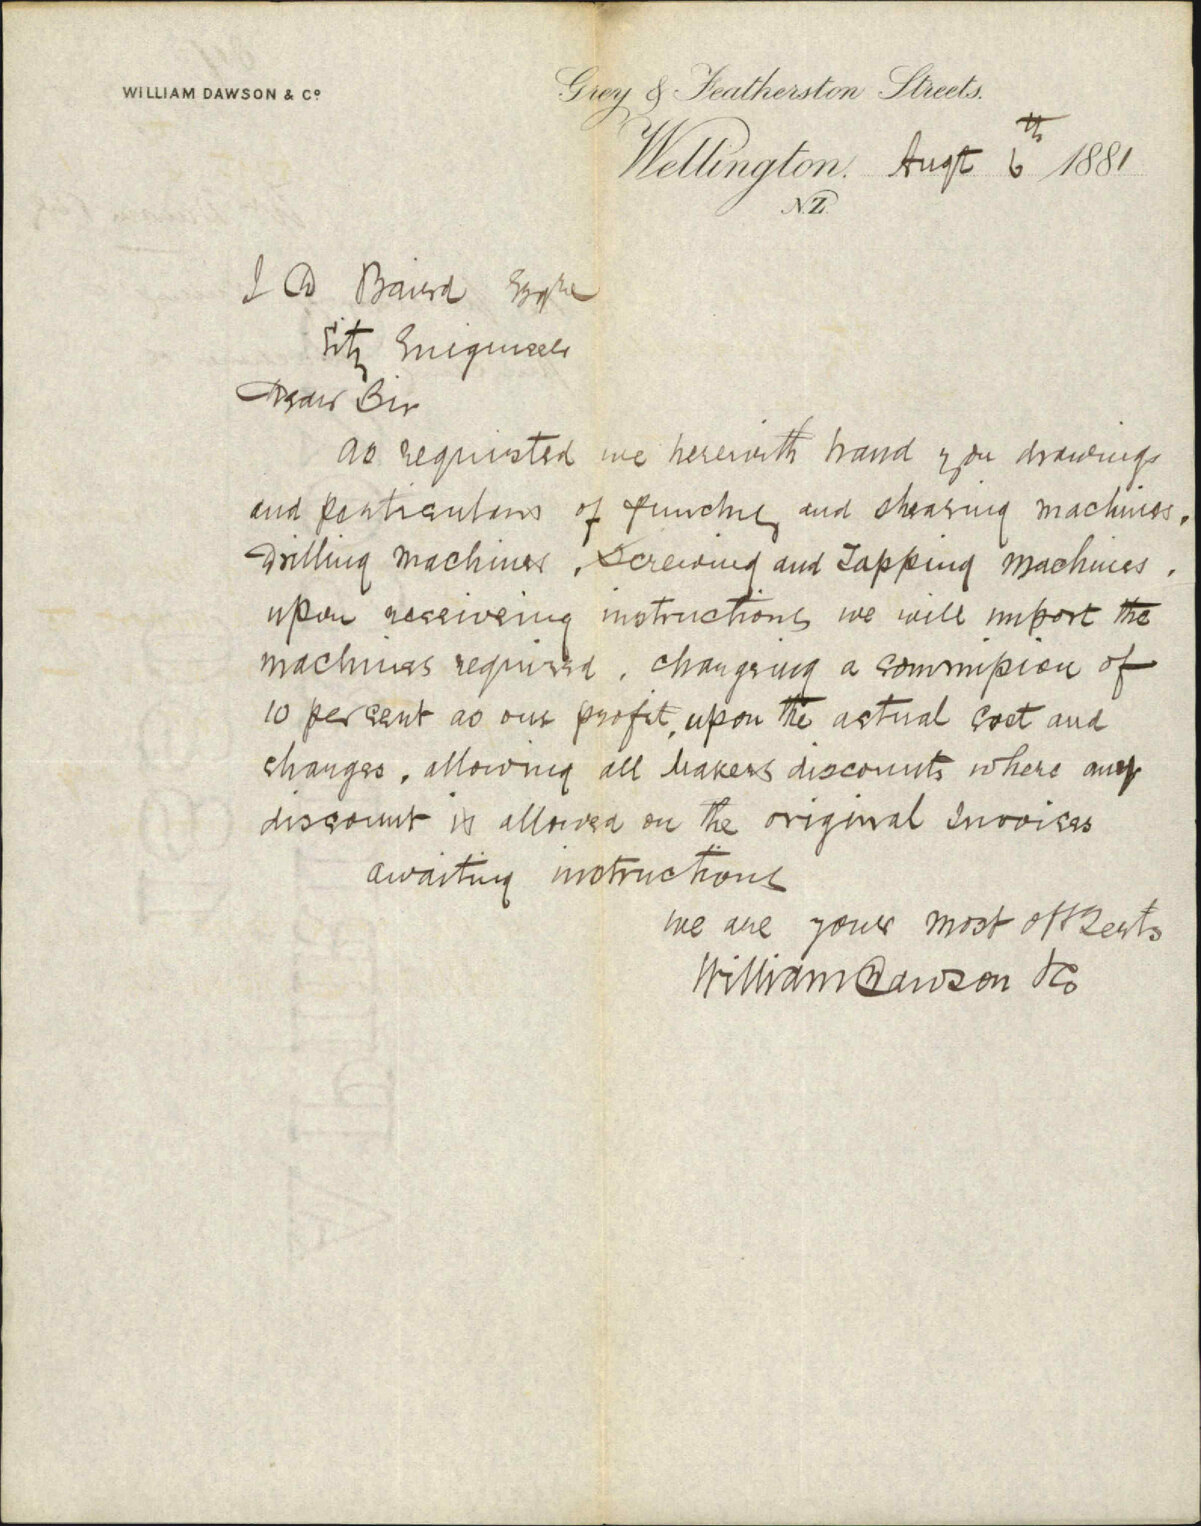 WILLIAM DAWSON & Co
Grey & Featherston Streets.
Wellington. Augt 6th 1881
N.Z.
J D Baird Esqre
City Engineer
Dear Sir
As requested we herewith hand you drawings
and particulars of punching and shearing machines,
Drilling machines, Screwing and Tapping machines.
upon receiveing instructions we will import the
machines required, chargeing a commission of
10 per cent as our profit, upon the actual cost and
charges, allowing all makers discounts where any
discount is allowed on the original Invoices
awaiting instructions
we are yours most obt Servts
William Dawson & Co